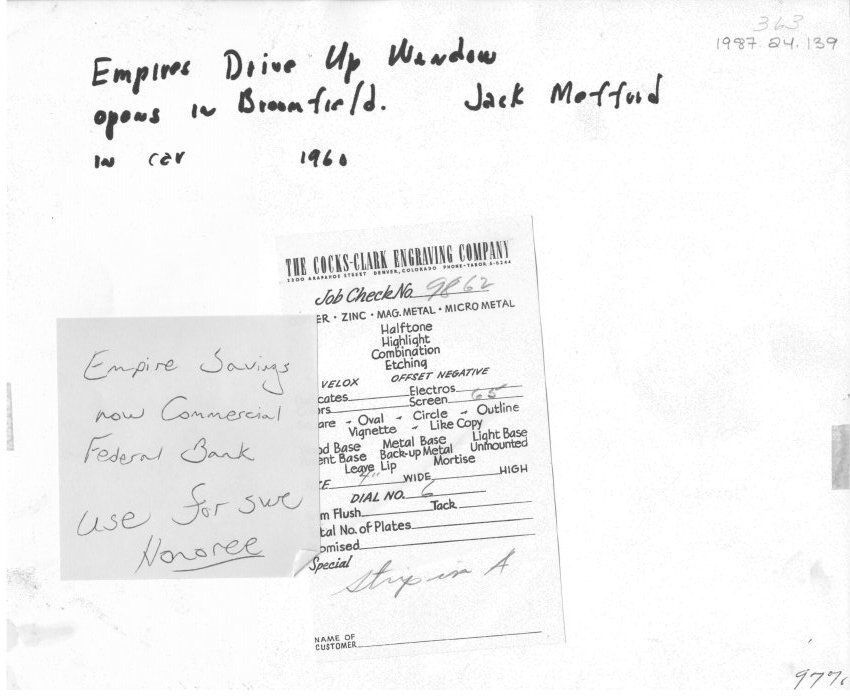 363
1987.24.139
Empires Drive Up Window
opens in Broomfield. Jack Mofford
in car 1960
THE COCKS-CLARK ENGRAVING COMPANY
2200 ARAPAHOE STREET DENVER, COLORADO PHONE-TABOR 5-6244
Job Check No. 9862
ER • ZINC • MAG. METAL • MICRO METAL
Halftone
Highlight
Combination
Etching
VELOX OFFSET NEGATIVE
cates Electros
ors Screen 65
are - Oval - Circle - Outline
Vignette - Like Copy
od Base Metal Base Light Base
ent Base Back-up Metal Unmounted
Leave Lip Mortise
CE 4" WIDE HIGH
DIAL NO. 6
m Flush Tack
tal No. of Plates
omised
Special
Strip in A
NAME OF
CUSTOMER
Empire Savings
now Commercial
Federal Bank
use for swe
Honoree
977